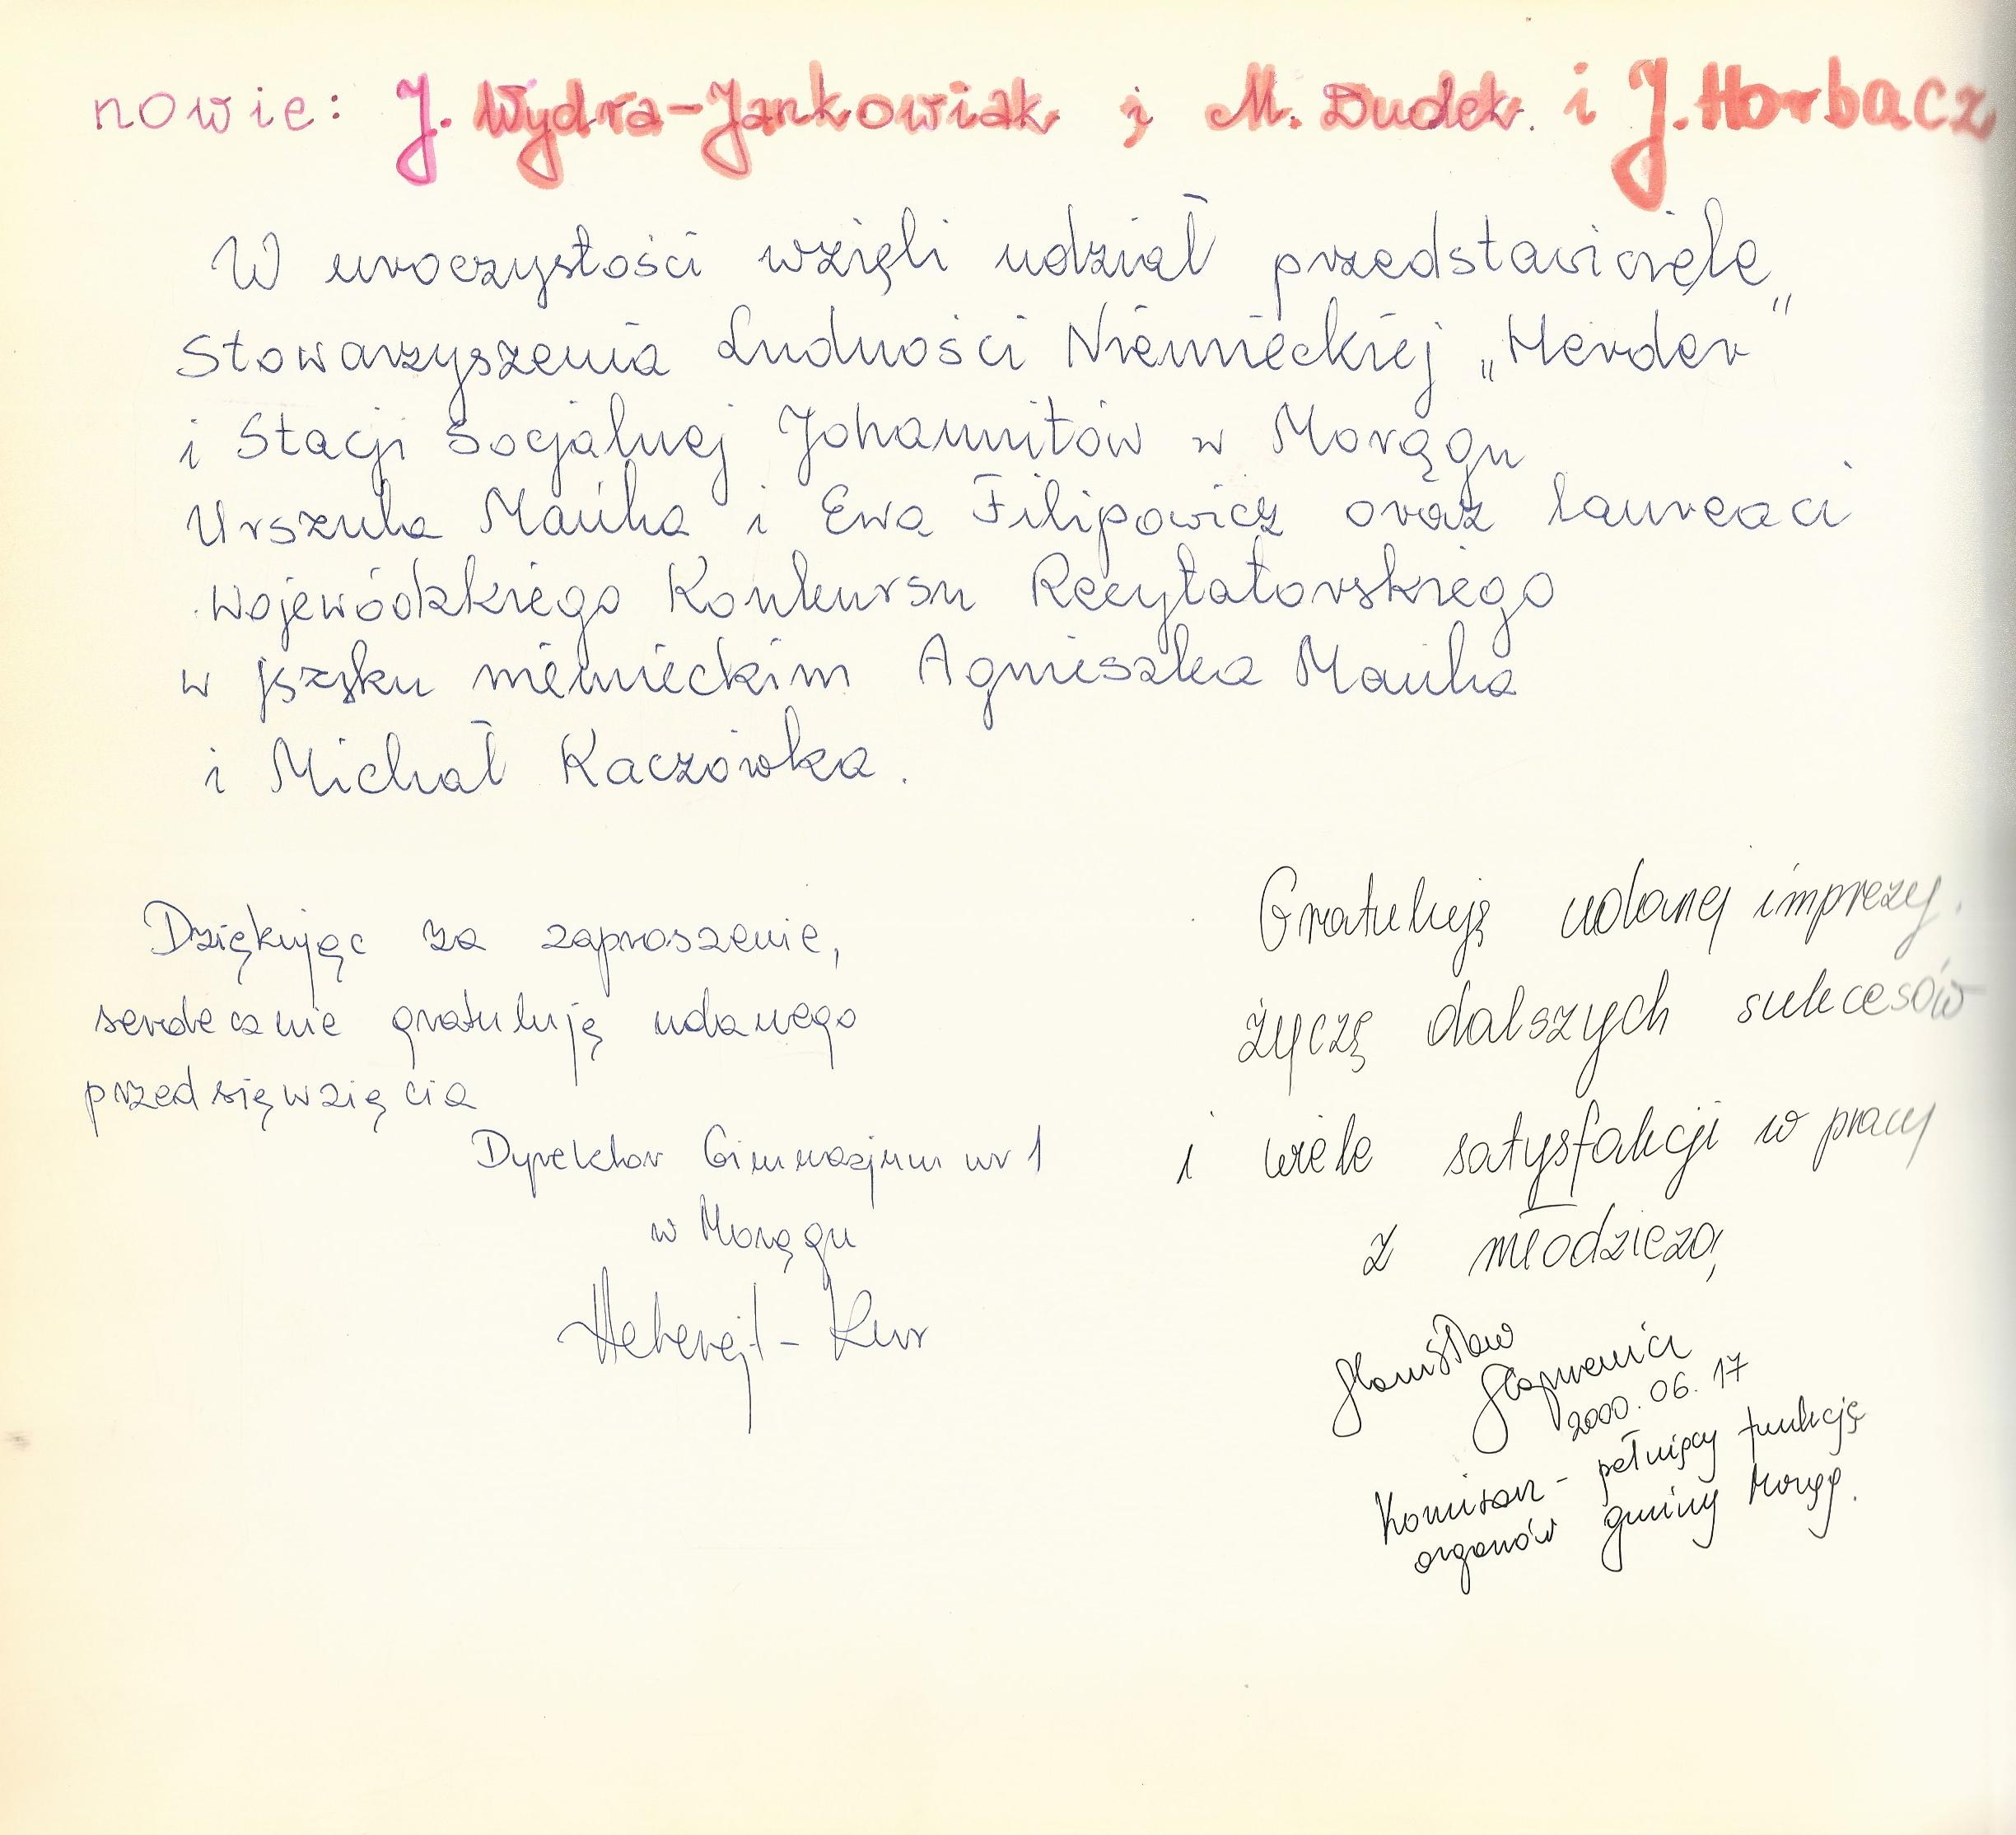 nowie: J. Wydra-Jankowiak i M. Dudek. i J. Horbacz
W uroczystości wzięli udział przedstawiciele
Stowarzyszenia Ludności Niemieckiej „Herder”
i Stacji Socjalnej Johannitów w Morągu
Urszula Mańka i Ewa Filipowicz oraz laureaci
wojewódzkiego Konkursu Recytatorskiego
w języku niemieckim Agnieszka Mańka
i Michał Kaczówka.
Dziękując za zaproszenie,
serdecznie gratuluję udanego
przedsięwzięcia
Dyrektor Gimnazjum nr 1
w Morągu
Gratuluję udanej imprezy.
życzę dalszych sukcesów
i wiele satysfakcji w pracy
z młodzieżą
Stanisław
2000.06.17
Komisarz - pełniący funkcję
organów gminy Morąg.